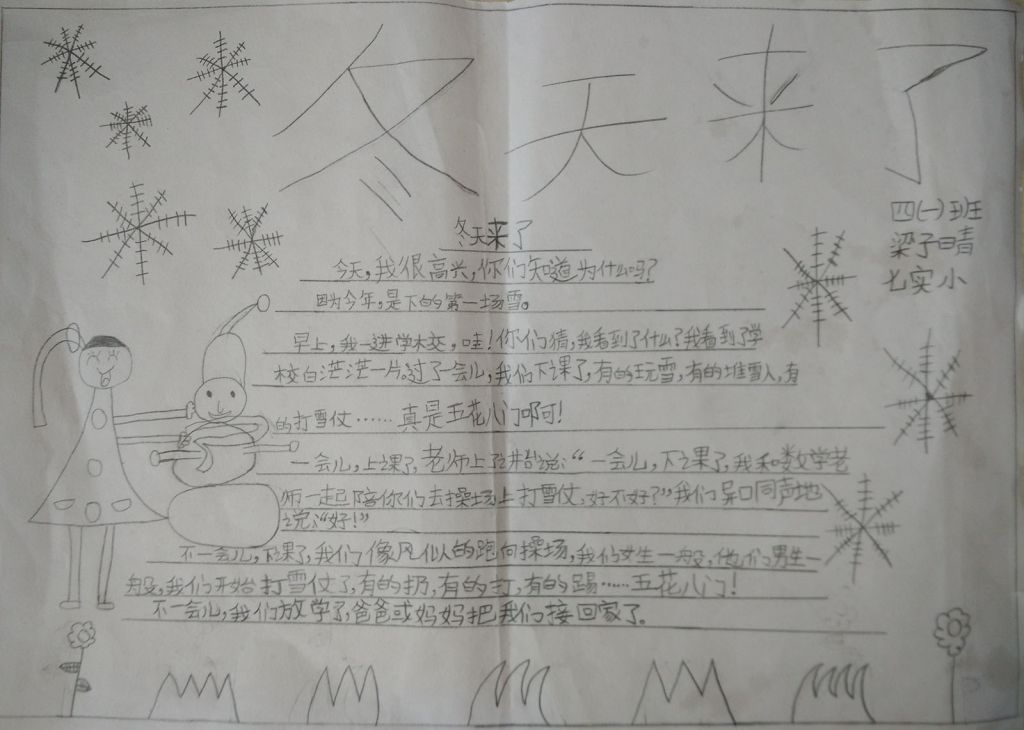 冬天来了
四(一)班
梁子晴
七实小
冬天来了
今天,我很高兴,你们知道为什么吗?
因为今年,是下的第一场雪。
早上,我一进学校,哇!你们猜,我看到了什么?我看到了学
校白茫茫一片。过了一会儿,我们下课了,有的玩雪,有的堆雪人,有
的打雪仗……真是五花八门啊!
一会儿,上课了,老师上了讲台说:“一会儿,下课了,我和数学老
师一起陪你们去操场上打雪仗,好不好?”我们异口同声地
说:“好!”
不一会儿,下课了,我们像风似的跑向操场,我们女生一般,他们男生一
般,我们开始打雪仗了,有的扔,有的打,有的踢……五花八门!
不一会儿,我们放学了,爸爸或妈妈把我们接回家了。